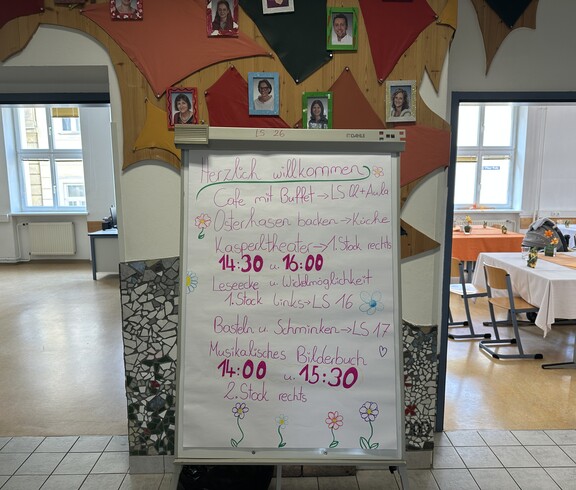 LS 26
Herzlich willkommen
Cafe mit Buffet → LS 02 + Aula
Osterhasen backen → Küche
Kasperltheater → 1. Stock rechts
14:30 u. 16:00
Leseecke u. Wickelmöglichkeit
1. Stock links → LS 16
Basteln u. Schminken → LS 17
Musikalisches Bilderbuch
14:00 u. 15:30
2. Stock rechts